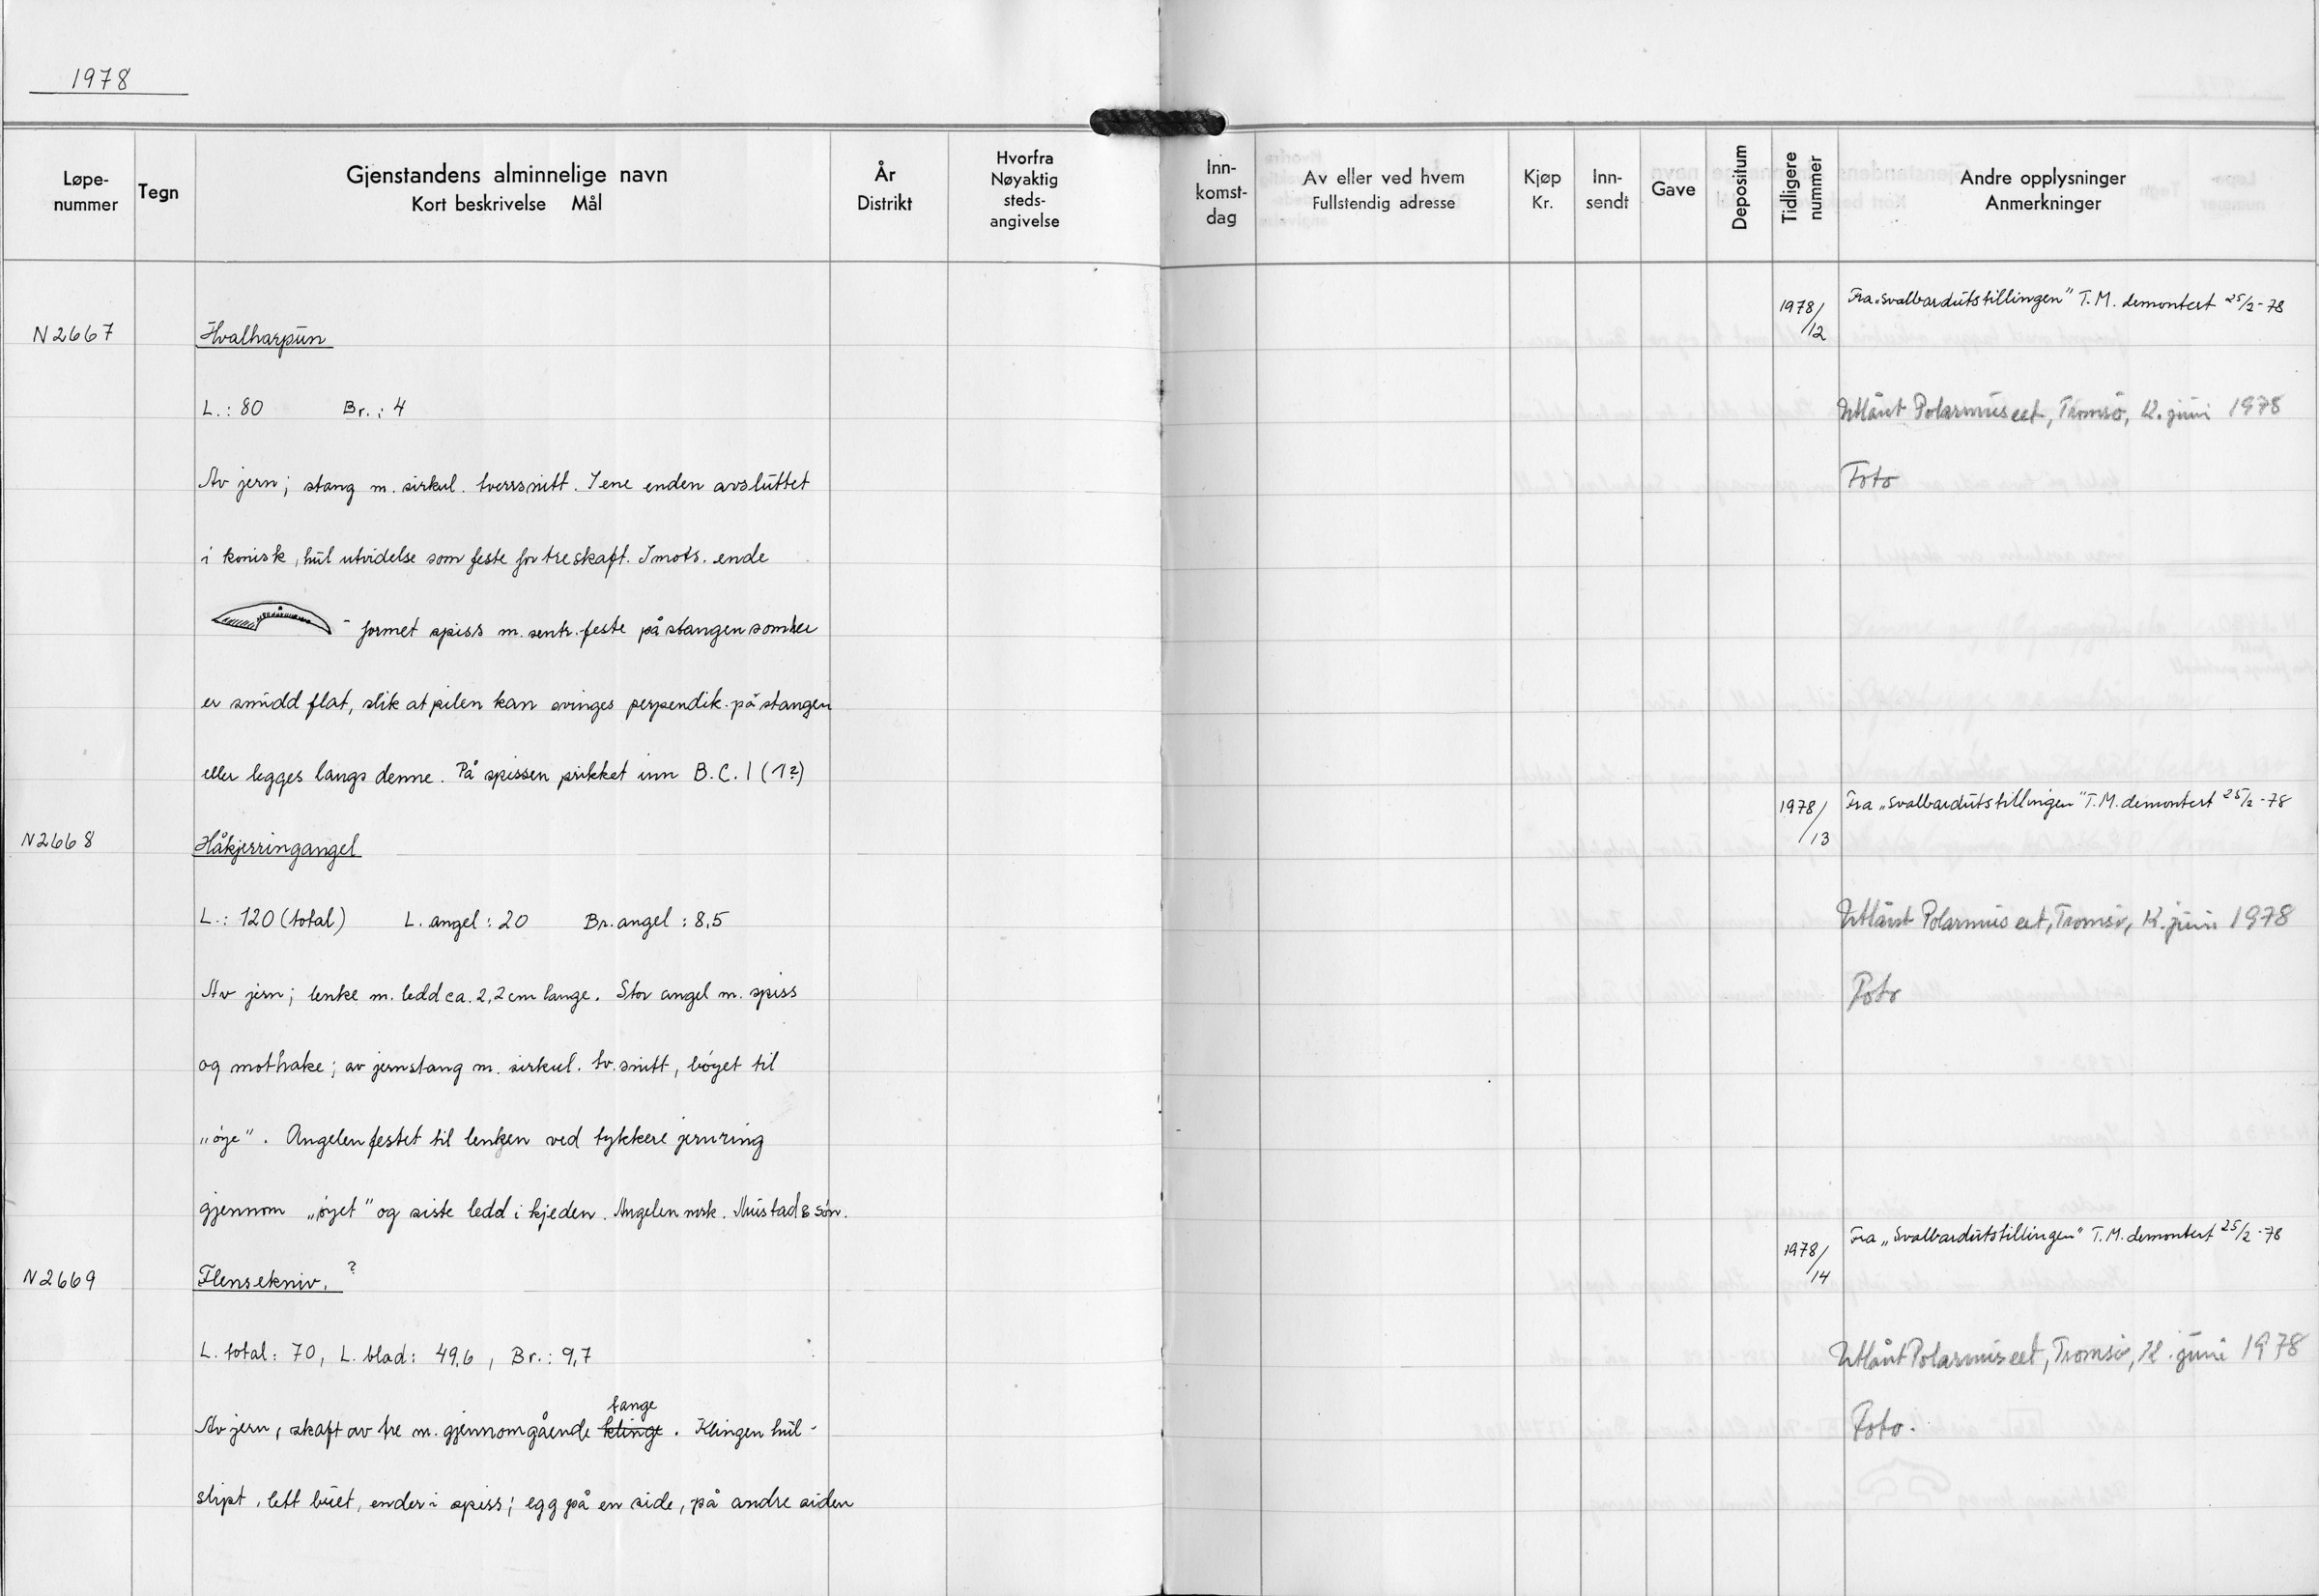 1978
Løpe-
nummer
Tegn
Gjenstandens alminnelige navn
Kort beskrivelse Mål
År
Distrikt
Hvorfra
Nøyaktig
steds-
angivelse
Inn-
komst-
dag
Av eller ved hvem
Fullstendig adresse
Kjøp
Kr.
Inn-
sendt
Gave
Depositum
Tidligere
nummer
Andre opplysninger
Anmerkninger
N2667
Hvalharpun
1978/12
Fra „Svalbardutstillingen" T.M. demontert 25/2-78
L.: 80 Br.: 4
Utlånt Polarmuseet, Tromsø, 12. juni 1978
Av jern; stang m. sirkul. tverrsnitt. I ene enden avsluttet
Foto
i konisk, hul utvidelse som feste for treskaft. I mots. ende
- formet spiss m. sentr. feste på stangen som her
er smidd flat, slik at pilen kan svinges perpendik. på stangen
eller legges langs denne. På spissen prikket inn B.C.I (1?)
N2668
Håkjerringangel
1978/13
Fra „Svalbardutstillingen" T.M. demontert 25/2-78
L.: 120 (total) L. angel: 20 Br. angel: 8,5
Utlånt Polarmuseet, Tromsø, 12. juni 1978
Av jern; lenke m. ledd ca. 2,2 cm lange. Stor angel m. spiss
Foto
og mothake; av jernstang m. sirkul. tv. snitt, bøyet til
„øye". Angelen festet til lenken ved tykkere jernring
gjennom „øyet" og siste ledd i kjeden. Angelen mrk. Mustad & søn.
N2669
Flensekniv. ?
1978/14
Fra „Svalbardutstillingen" T.M. demontert 25/2-78
L. total: 70, L. blad: 49,6, Br.: 9,7
Utlånt Polarmuseet, Tromsø, 12. juni 1978
tange
Av jern, skaft av tre m. gjennomgående klinge. Klingen hul-
Foto.
slipt, lett buet, ender i spiss; egg på en side, på andre siden